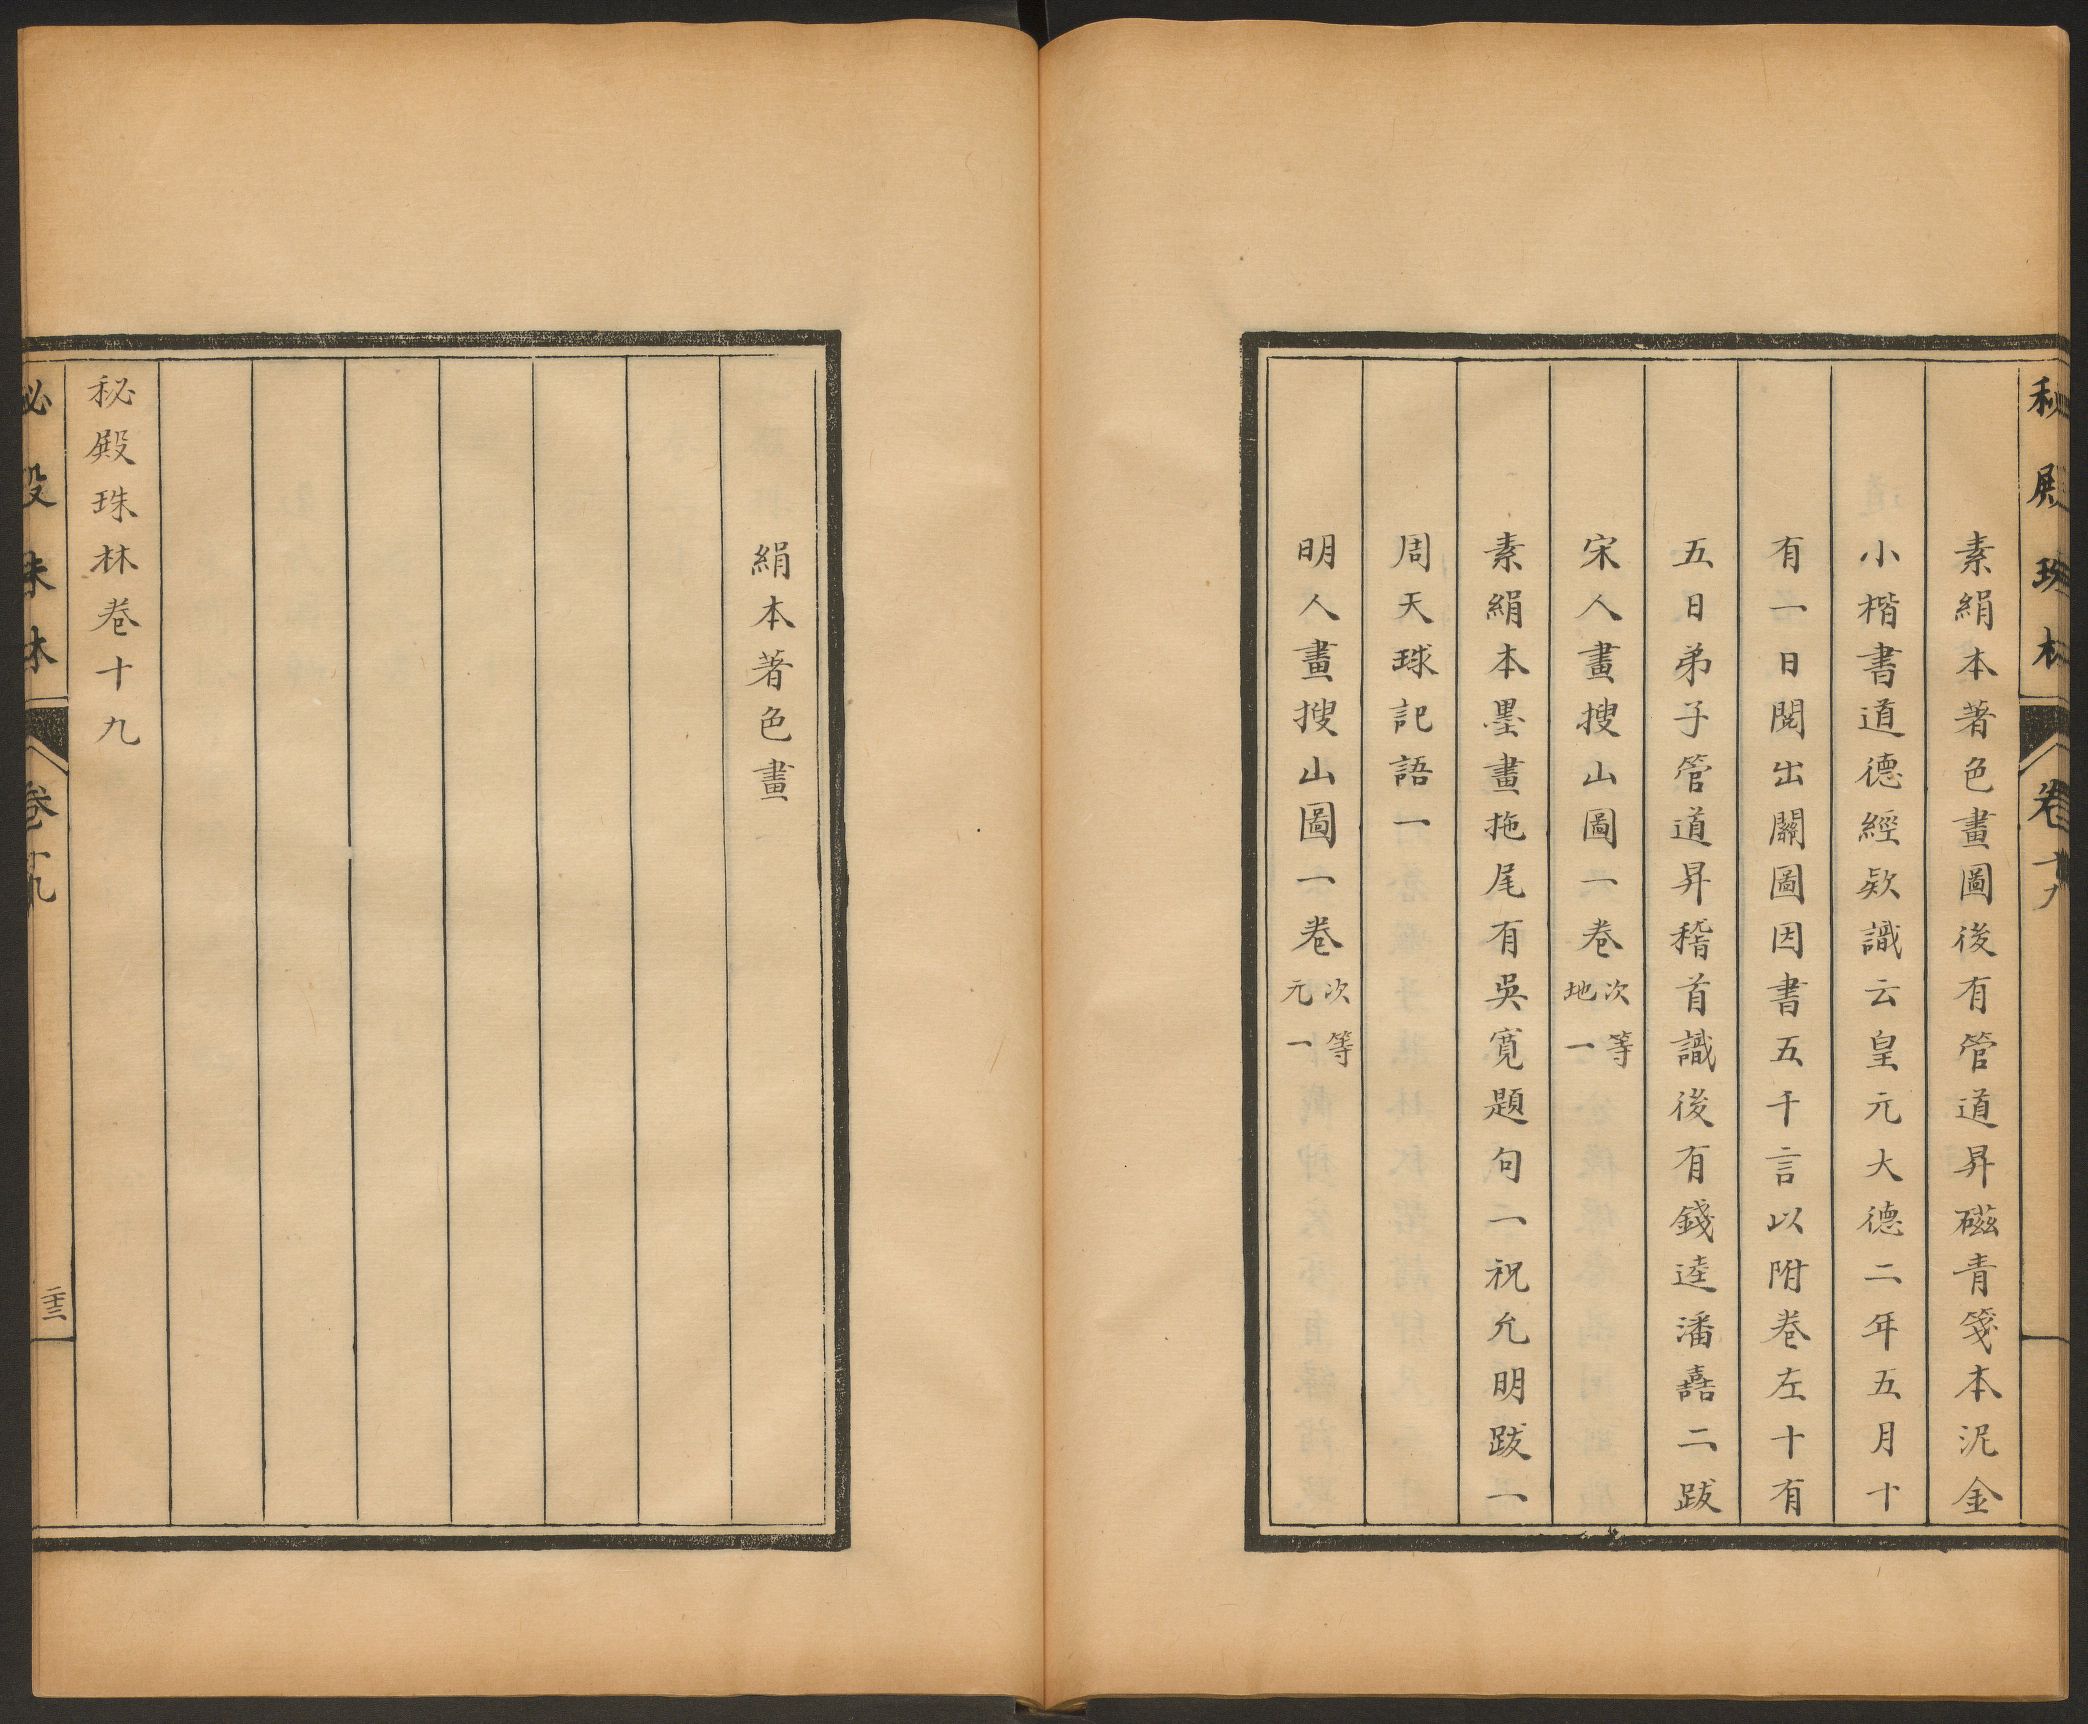 秘殿珠林
卷十九
素絹本著色畫圖後有管道昇磁青箋本泥金
小楷書道德經欵識云皇元大德二年五月十
有一日閱出關圖因書五千言以附卷左十有
五日弟子管道昇稽首識後有錢逵潘𡅕二跋
宋人畫搜山圖一卷次等地一
素絹本墨畫拖尾有吳寬題句一祝允明跋一
周天球記語一
明人畫搜山圖一卷次等元一
絹本著色畫
秘殿珠林卷十九
秘殿珠林
卷十九
二十三